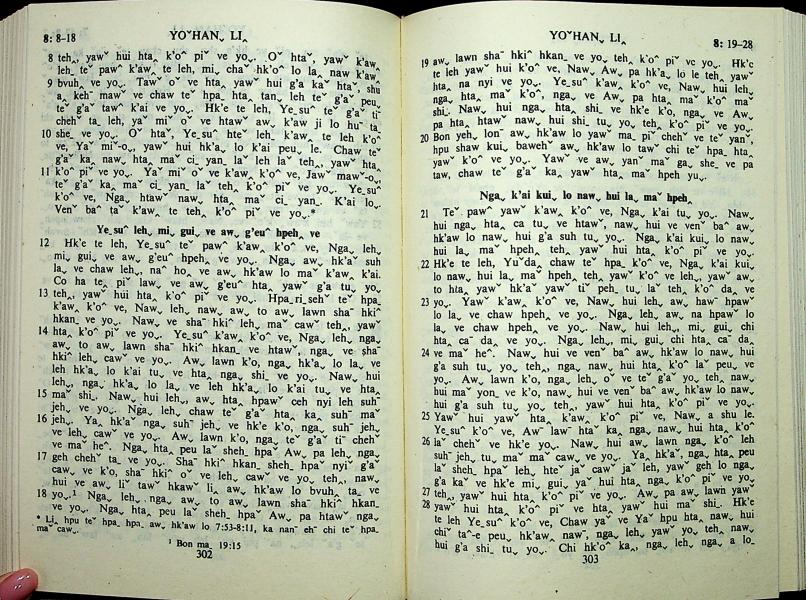 8: 8–18
YOˇHANˬ LI‸
8 teh‸, yawˇ hui hta‸ k'oˆ piˇ ve yoˬ. Oˇ htaˇ, yawˇ k'awˬ
leh‸ teˇ pawˆ k'awˬ te leh, miˬ chaˇ hk'oˆ lo la‸ naw k'awˬ
9 bvuh‸ ve yoˬ. Tawˇ oˇ ve hta‸ yawˇ hui g'a kaˇ htaˇ, shu
a‸ kehˉ mawˇ ve chaw teˇ hpaˍ hta‸ tanˬ leh teˇ g'aˇ peuˬ
teˇ g'aˇ tawˆ k'ai ve yoˬ. Hk'e te leh, Yeˍsuˆ te g'aˇ tiˇ
chehˇ taˍ leh, yaˇ miˇ oˇ ve htaw awˬ k'aw ji lo huˉ ta‸
10 sheˍ ve yoˬ. Oˇ htaˇ, Yeˍsuˆ hteˇ lehˬ k'awˬ te leh k'oˆ
ve, Yaˇ miˇ-oˬ, yawˇ hui hk'aˬ lo k'ai peuˬ le. Chaw teˇ
g'aˇ ka‸ naw hta‸ maˇ ciˍ yanˍ laˇ leh laˇ teh‸, yawˇ hta‸
11 k'oˆ piˇ ve yoˬ. Yaˇ miˇ oˇ ve k'aw k'oˆ ve, Jawˇ mawˇ-oˬ,
teˇ g'aˇ ka‸ maˇ ciˍ yanˍ laˇ teh‸ k'oˆ piˇ ve yoˬ. Yeˍsuˆ
k'oˆ ve, Nga‸ htawˇ naw‸ hta‸ maˇ ciˍ yanˍ. K'ai loˬ.
Venˇ baˆ taˇ k'awˬ te teh‸ k'oˆ piˇ ve yoˬ.*
Yeˍsuˆ lehˬ miˬ guiˬ ve awˬ g'euˆ hpeh‸ ve
12 Hk'e te leh, Yeˍsuˆ teˇ pawˆ k'awˬ k'oˆ ve, Ngaˬ lehˬ
miˬ guiˬ ve awˬ g'euˆ hpehˇ ve yoˬ. Ngaˬ awˬ hk'aˇ suh
laˬ ve chaw lehˬ, naˆ ho‸ ve awˬ hk'aw lo maˇ k'awˬ k'ai.
Co ha te‸ piˇ lawˬ ve awˬ g'euˆ hta‸ yawˇ g'a tuˬ yoˬ
13 teh‸, yawˇ hui hta‸ k'oˆ piˇ ve yoˬ. Hpaˍriˍsehˇ te‸ hpaˍ
k'awˬ k'oˆ ve, Nawˬ lehˬ nawˬ awˬ to awˬ lawn shaˉ hkiˆ
hkanˍ ve yoˬ. Nawˬ ve shaˉ hkiˆ leh maˇ cawˇ teh‸, yawˇ
14 hta‸ k'oˆ piˇ ve yoˬ. Yeˍsuˆ k'awˬ k'oˆ ve, Ngaˬ lehˬ ngaˬ
awˬ to awˬ lawn shaˉ hkiˆ hkanˍ ve htawˇ, ngaˬ ve shaˉ
hkiˆ lehˬ cawˇ ve yoˬ. Aw‸ lawn‸ k'o, ngaˬ hk'a‸ lo laˬ ve
leh hk'a‸ lo k'ai tuˬ ve hta‸ ngaˬ shiˍ ve yoˬ. Nawˬ hui
lehˬ, ngaˬ hk'a‸ lo laˬ ve leh hk'a‸ lo k'ai tuˬ ve hta‸
15 maˇ shiˍ. Nawˬ hui lehˬ, awˬ hta‸ hpawˇ ceh nyi leh suhˇ
jehˬ ve yoˬ. Ngaˬ lehˬ chaw teˇ g'aˇ hta‸ ka‸ suhˇ maˇ
16 jehˬ. Ya‸ hk'aˇ ngaˬ suhˇ jehˬ ve hk'e k'o, ngaˬ suhˇ jehˬ
ve lehˬ cawˇ ve yoˬ. Aw‸ lawn‸ k'o, ngaˬ teˇ g'aˇ tiˇ chehˇ
ve maˇ heˆ. Ngaˬ hta‸ peu laˇ shehˍ hpaˍ Awˬ pa lehˬ ngaˬ
17 geh chehˇ taˍ ve yoˬ. Shaˉ hkiˆ hkanˍ shehˍ hpaˍ nyiˇ g'aˇ
cawˬ ve k'o, shaˉ hkiˆ oˇ ve lehˬ cawˇ ve yoˬ teh‸, nawˬ
hui ve awˬ liˇ tawˇ hkawˇ liˬ aw‸ hk'aw lo bvuh‸ taˍ ve
18 yoˬ.¹ Ngaˬ lehˬ ngaˬ awˬ to awˬ lawn shaˉ hkiˆ hkanˍ
ve yoˬ. Ngaˬ hta‸ peu laˇ shehˍ hpaˍ Awˬ pa htawˇ ngaˬ
* Li‸ hpu teˇ hpaˍ hpa‸ aw‸ hk'aw lo 7:53-8:11, ka nanˉ ehˉ chi teˇ hpa‸
maˇ cawˬ.
¹ Bon maˍ 19:15
302
YOˇHANˬ LI‸
8: 19–28
19 awˬ lawn shaˉ hkiˆ hkanˍ ve yoˬ teh‸ k'oˆ piˇ ve yoˬ. Hk'e
te leh yawˇ hui k'oˆ ve, Nawˬ Awˬ pa hk'a‸ lo le teh‸ yawˇ
hta‸ na nyi ve yoˬ. Yeˍsuˆ k'awˬ k'oˆ ve, Nawˬ hui lehˬ
nga‸ hta‸ maˇ k'oˆ, ngaˬ ve Awˬ pa hta‸ maˇ k'oˆ maˇ
shiˍ. Nawˬ hui ngaˬ hta‸ shiˍ ve hk'e k'o, ngaˬ ve Awˬ
pa hta‸ htawˇ nawˬ hui shiˍ tuˬ yoˬ teh‸ k'oˆ piˇ ve yoˬ.
20 Bon yehˬ lonˉ aw‸ hk'aw lo yawˇ maˍ piˇ chehˇ ve teˇ yanˇ,
hpu shaw kuiˬ bawehˇ awˬ hk'aw lo tawˇ chi teˇ hpaˍ hta‸
yawˇ k'oˆ ve yoˬ. Yawˇ ve awˬ yanˇ maˇ ga‸ sheˍ ve pa
taw, chaw teˇ g'aˇ ka‸ yawˇ hta‸ maˇ hpeh yuˬ.
Ngaˬ k'ai kuiˬ lo nawˬ hui la‸ maˇ hpeh‸
21 Teˇ pawˆ yawˇ k'awˬ k'oˆ ve, Ngaˬ k'ai tuˬ yoˬ. Nawˬ
hui ngaˬ hta‸ ca tuˬ ve htawˇ, nawˬ hui ve venˇ baˆ awˬ
hk'aw lo nawˬ hui g'a suh tuˬ yoˬ. Ngaˬ k'ai kuiˬ lo nawˬ
hui la‸ maˇ hpeh‸ teh‸ yawˇ hui hta‸ k'oˆ piˇ ve yoˬ.
22 Hk'e te leh, Yuˇda‸ chaw teˇ hpaˍ k'oˆ ve, Ngaˬ k'ai kuiˬ
lo nawˬ hui la‸ maˇ hpeh‸ teh‸ yawˇ k'oˆ ve lehˬ, yawˇ awˬ
to hta‸ yawˇ hk'aˇ yawˇ tiˇ peh‸ tuˬ laˇ teh‸ k'oˆ daˬ ve
23 yoˬ. Yawˇ k'awˬ k'oˆ ve, Nawˬ hui lehˬ awˬ hawˇ hpawˇ
lo la‸ ve chaw hpeh‸ ve yoˬ. Ngaˬ lehˬ awˬ na hpawˇ lo
laˬ ve chaw hpeh‸ ve yoˬ. Nawˬ hui lehˬ, miˬ guiˬ chi
hta‸ caˉ daˬ ve yoˬ. Ngaˬ lehˬ, miˬ guiˬ chi hta‸ caˉ daˬ
24 ve maˇ heˆ. Nawˬ hui ve venˇ baˆ aw‸ hk'aw lo nawˬ hui
g'a suh tuˬ yoˬ teh‸, ngaˬ nawˇ hui hta‸ k'oˆ laˇ peuˬ ve
yoˬ. Aw‸ lawn‸ k'o, ngaˬ lehˬ oˇ ve teˇ g'aˇ yoˬ teh‸ nawˬ
hui maˇ yonˍ ve k'o, nawˬ hui ve venˇ baˆ aw‸ hk'aw lo nawˬ
hui g'a suh tuˬ yoˬ teh‸, yawˇ hui hta‸ k'oˆ piˇ ve yoˬ.
25 Yawˇ hui yawˇ hta‸ k'awˬ k'oˆ piˇ ve, Nawˬ a shu le.
Yeˍsuˆ k'oˆ ve, Awˉ lawˇ htaˇ ka‸ ngaˬ nawˬ hui hta‸ k'oˆ
26 laˇ chehˇ ve hk'e yoˬ. Nawˬ hui aw‸ lawn ngaˬ k'oˆ leh
suhˇ jehˬ tuˬ maˇ maˬ cawˬ ve yoˬ. Ya‸ hk'aˇ, ngaˬ hta‸ peu
laˇ shehˍ hpaˍ leh‸ hteˇ jaˇ cawˬ jaˇ leh, yawˇ geh lo ngaˬ
g'a kaˇ ve hk'e miˬ guiˬ yaˇ hui hta‸ ngaˬ k'oˆ piˇ ve yoˬ
27 teh‸ yawˇ hui hta‸ k'oˆ piˇ ve yoˬ. Awˬ pa‸ awˬ lawn yawˇ
28 yawˇ hui hta‸ k'oˆ piˇ ve hta‸ yawˇ hui maˇ shiˍ. Hk'e
te leh Yeˍsuˆ k'oˆ ve, Chaw yaˇ ve Yaˇ hpu hta‸ nawˬ hui
chiˇ taˆ-e peuˬ hk'awˬ nawˉ, ngaˬ lehˬ yawˇ yoˬ teh‸ nawˬ
hui g'a shiˍ tuˬ yoˬ. Chi hk'oˆ ka‸, ngaˬ lehˬ ngaˬ a lo-
303